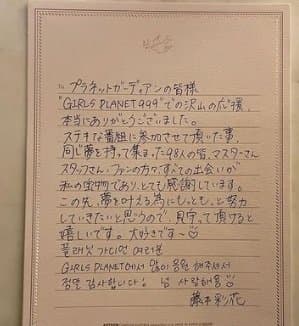 To プラネットガーディアンの皆様
"GIRLS PLANET 999"での沢山の応援、
本当にありがとうございました。
ステキな番組に参加させて頂った事
同じ夢を持って集まった98人の皆、マスターさん
スタッフさん・ファンの方々、すべての出会いが
私の宝物であり、とても感謝しています。
この先、夢を叶える為にもっと、もっと努力
していきたいと思うので、見守って頂けると
嬉しいです。大好きです〜♡
플래닛 가디언 여러분
GIRLS PLANET에서 많이 응원 해주셔서
정말 감사합니다! 넘 사랑해용♡
藤本彩花